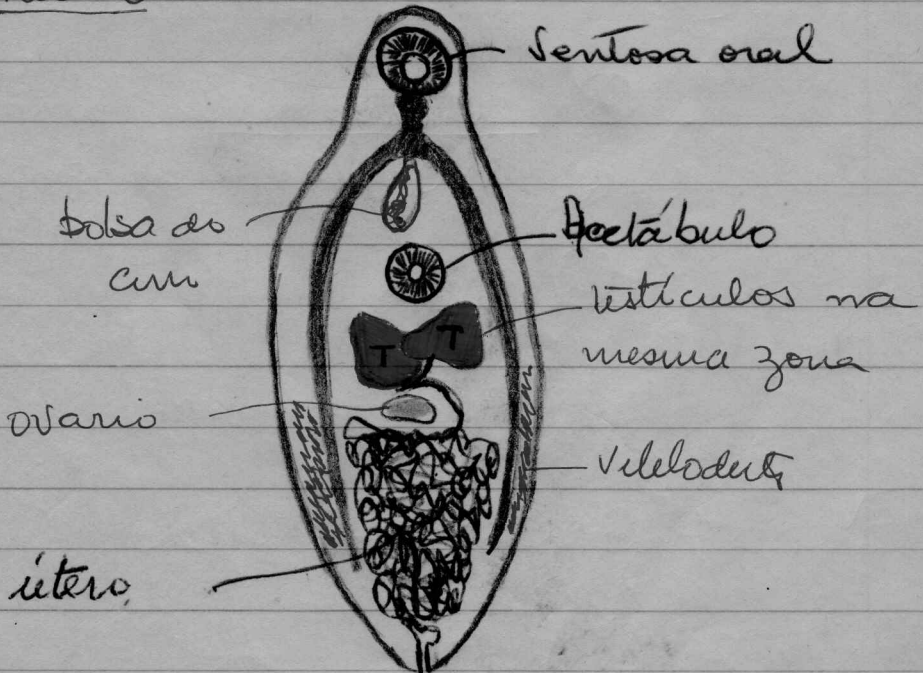 Ventosa oral
bolsa do
cirro
Acetábulo
testículos na
mesma zona
T T
ovario
útero